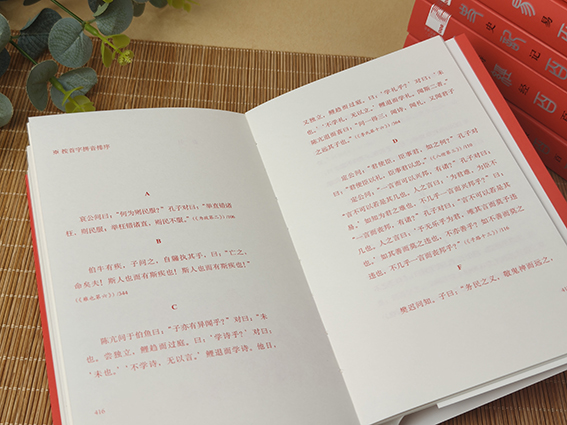 按首字拼音排序
A
哀公问曰："何为则民服？"孔子对曰："举直错诸
枉，则民服；举枉错诸直，则民不服。"（《为政第二》）
B
伯牛有疾，子问之，自牖执其手，曰："亡之，
命矣夫！斯人也而有斯疾也！斯人也而有斯疾也！"
（《雍也第六》）/144
C
陈亢问于伯鱼曰："子亦有异闻乎？"对曰："未
也。尝独立，鲤趋而过庭。曰：'学诗乎？'对曰：
'未也。''不学诗，无以言。'鲤退而学诗。他日，
436
又独立，鲤趋而过庭。曰：'学礼乎？'对曰：'未
也。''不学礼，无以立。'鲤退而学礼。闻斯二者。"
陈亢退而喜曰："问一得三：闻诗，闻礼，又闻君子
之远其子也。"（《季氏第十六》）
D
定公问："君使臣，臣事君，如之何？"孔子对
曰："君使臣以礼，臣事君以忠。"（《八佾第三》）
定公问："一言而可以兴邦，有诸？"孔子对曰：
"言不可以若是其几也。人之言曰：'为君难，为臣不
易。'如知为君之难也，不几乎一言而兴邦乎？"曰：
"一言而丧邦，有诸？"孔子对曰："言不可以若是其
几也。人之言曰：'予无乐乎为君，唯其言而莫予违
也。'如其善而莫之违也，不亦善乎？如不善而莫之
违也，不几乎一言而丧邦乎？"（《子路第十三》）
F
樊迟问知，子曰："务民之义，敬鬼神而远之，